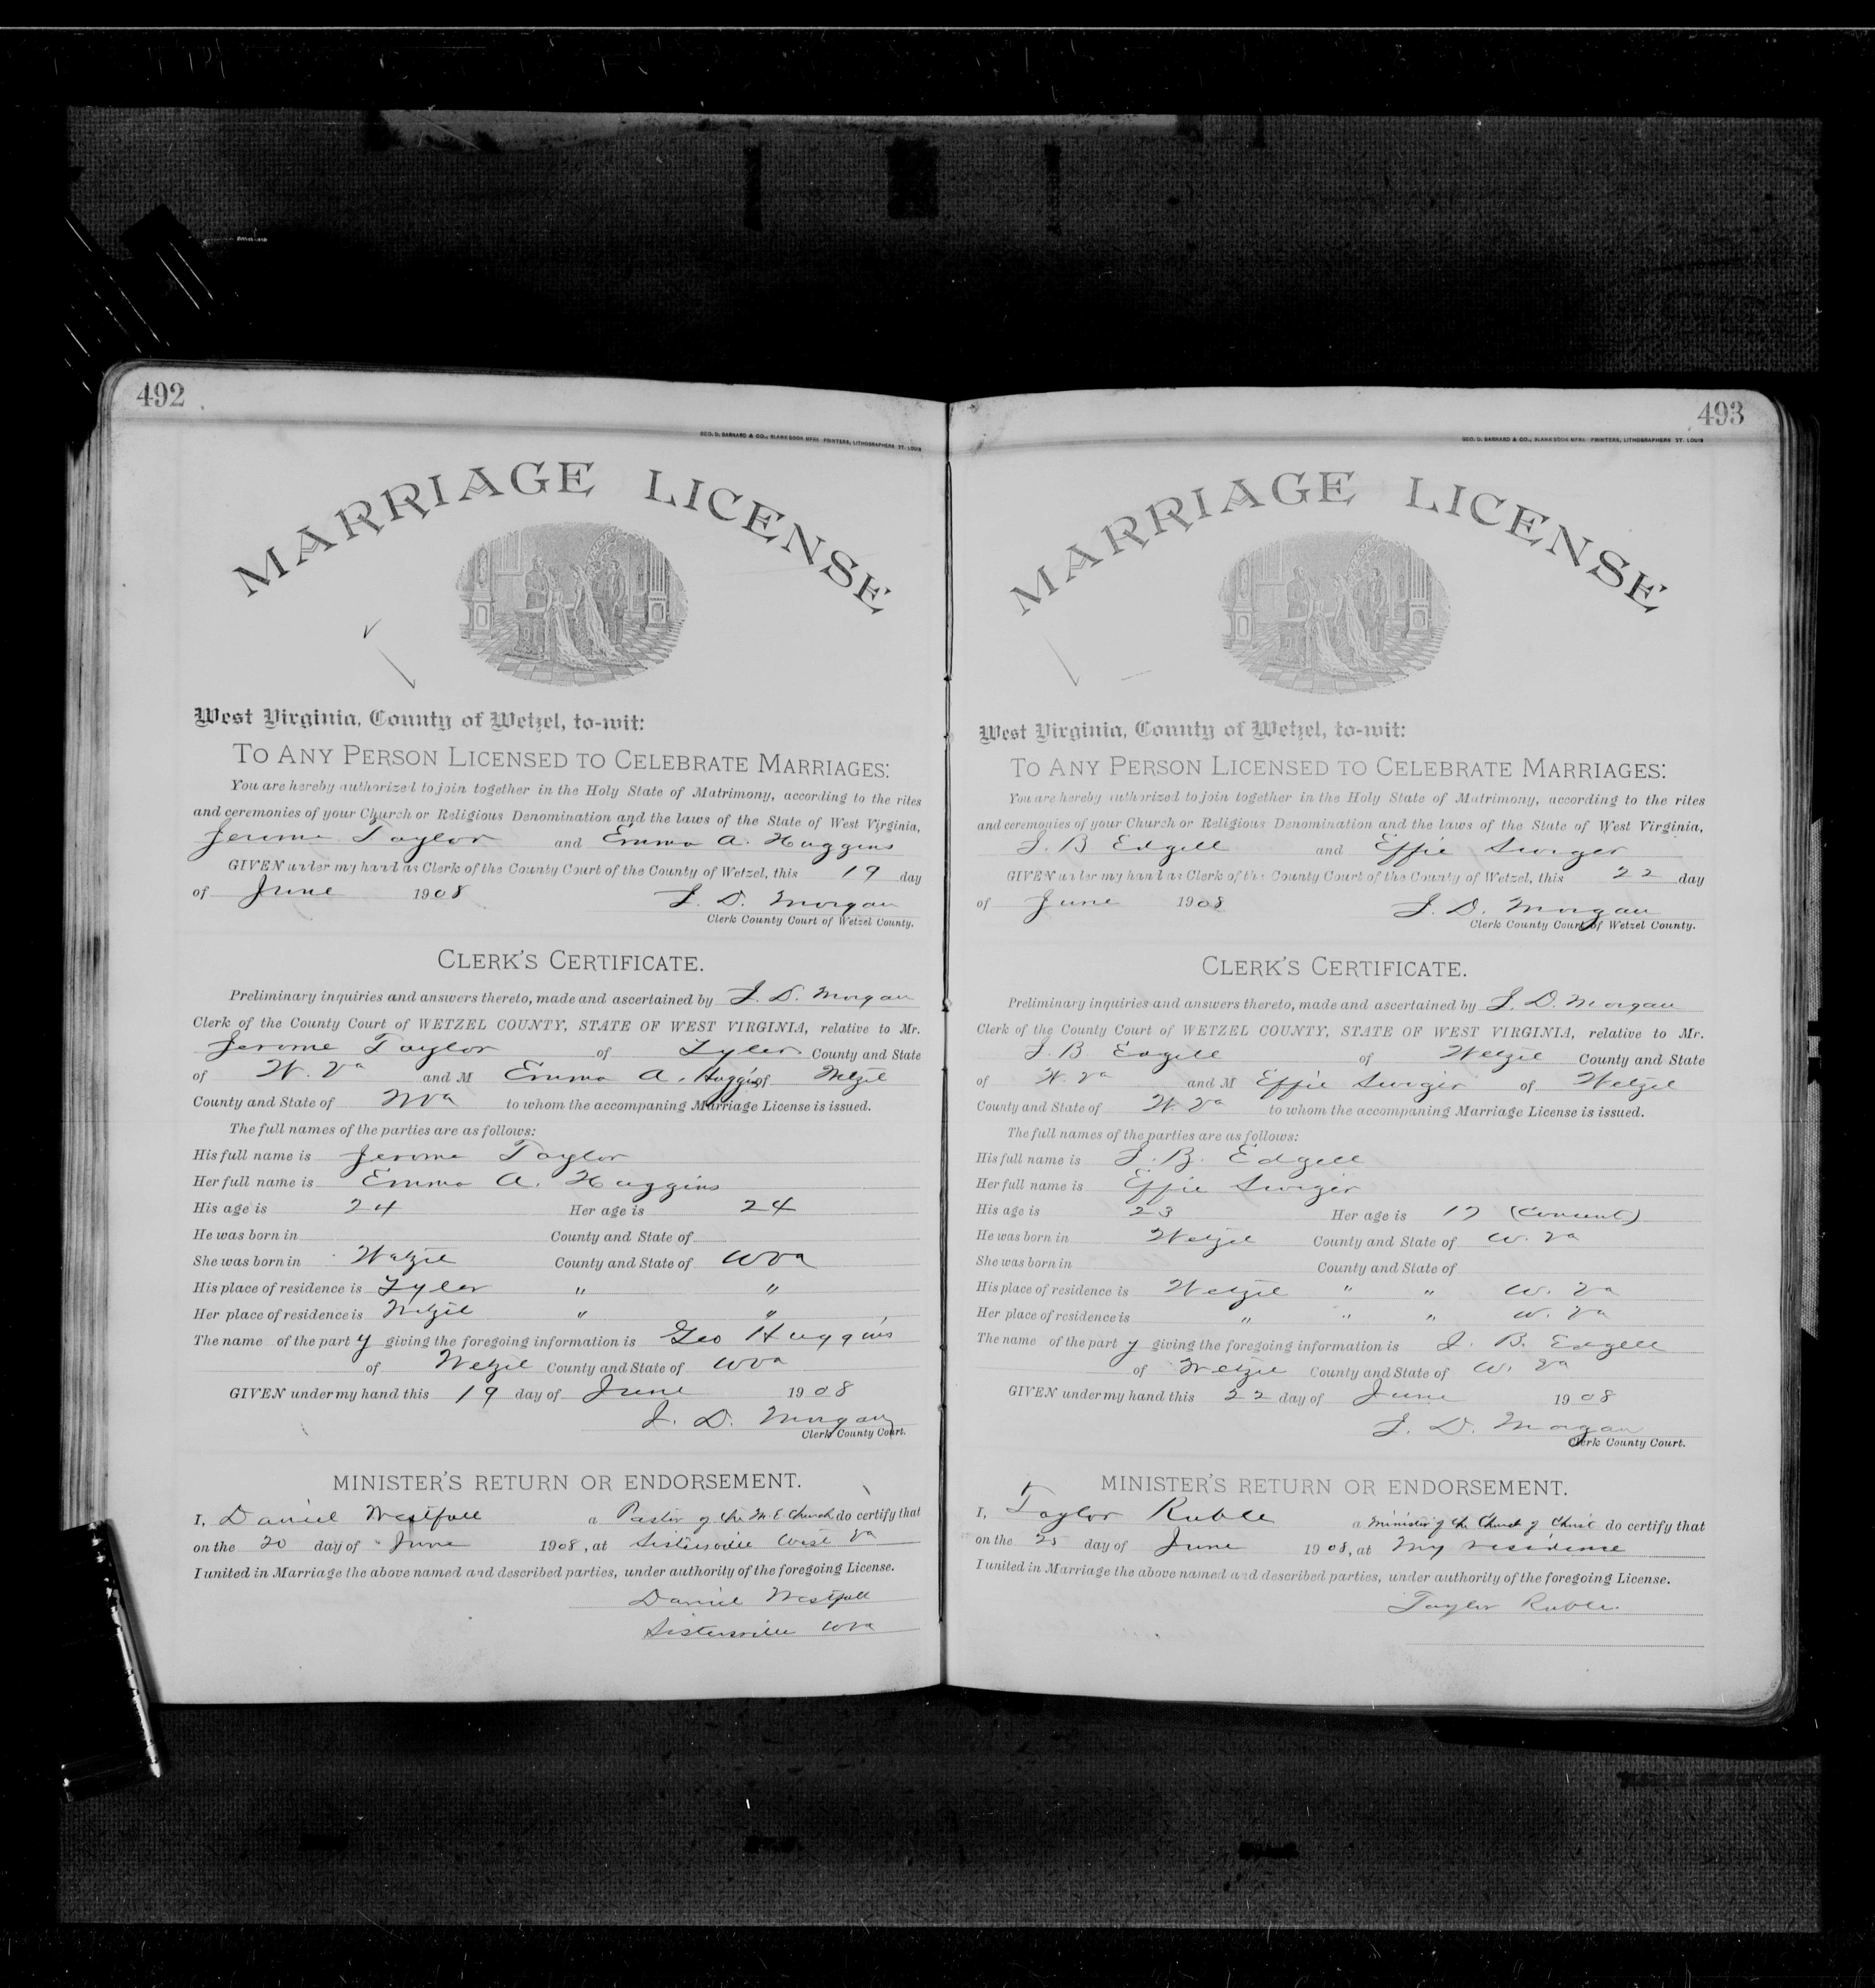 492
GEO. D. BARNARD & CO., BLANK BOOK MFRS. PRINTERS, LITHOGRAPHERS ST. LOUIS
MARRIAGE LICENSE
West Virginia, County of Wetzel, to-wit:
TO ANY PERSON LICENSED TO CELEBRATE MARRIAGES:
You are hereby authorized to join together in the Holy State of Matrimony, according to the rites
and ceremonies of your Church or Religious Denomination and the laws of the State of West Virginia,
Jerome Taylor and Emma A. Huggins
GIVEN under my hand as Clerk of the County Court of the County of Wetzel, this 19 day
of June 1908 J. D. Morgan
Clerk County Court of Wetzel County.
CLERK'S CERTIFICATE.
Preliminary inquiries and answers thereto, made and ascertained by J. D. Morgan
Clerk of the County Court of WETZEL COUNTY, STATE OF WEST VIRGINIA, relative to Mr.
Jerome Taylor of Tyler County and State
of W. Va and M Emma A. Huggins of Wetzel
County and State of Wva to whom the accompaning Marriage License is issued.
The full names of the parties are as follows:
His full name is Jerome Taylor
Her full name is Emma A. Huggins
His age is 24 Her age is 24
He was born in County and State of
She was born in Wetzel County and State of Wva
His place of residence is Tyler " "
Her place of residence is Wetzel " "
The name of the party giving the foregoing information is Geo Huggins
of Wetzel County and State of Wva
GIVEN under my hand this 19 day of June 1908
J. D. Morgan
Clerk County Court.
MINISTER'S RETURN OR ENDORSEMENT.
I, Daniel Westfall a Pastor of the M. E Church do certify that
on the 20 day of June 1908, at Sistersville West Va
I united in Marriage the above named and described parties, under authority of the foregoing License.
Daniel Westfall
Sistersville Wva
493
GEO. D. BARNARD & CO., BLANK BOOK MFRS. PRINTERS, LITHOGRAPHERS ST. LOUIS
MARRIAGE LICENSE
West Virginia, County of Wetzel, to-wit:
TO ANY PERSON LICENSED TO CELEBRATE MARRIAGES:
You are hereby authorized to join together in the Holy State of Matrimony, according to the rites
and ceremonies of your Church or Religious Denomination and the laws of the State of West Virginia,
J. B Edgell and Effie Swiger
GIVEN under my hand as Clerk of the County Court of the County of Wetzel, this 22 day
of June 1908 J. D. Morgan
Clerk County Court of Wetzel County.
CLERK'S CERTIFICATE.
Preliminary inquiries and answers thereto, made and ascertained by J. D. Morgan
Clerk of the County Court of WETZEL COUNTY, STATE OF WEST VIRGINIA, relative to Mr.
J. B. Edgell of Wetzel County and State
of W. Va and M Effie Swiger of Wetzel
County and State of W. Va to whom the accompaning Marriage License is issued.
The full names of the parties are as follows:
His full name is J. B. Edgell
Her full name is Effie Swiger
His age is 23 Her age is 17 (Consent)
He was born in Wetzel County and State of W. Va
She was born in County and State of
His place of residence is Wetzel " " W. Va
Her place of residence is " " " W. Va
The name of the party giving the foregoing information is J. B. Edgell
of Wetzel County and State of W. Va
GIVEN under my hand this 22 day of June 1908
J. D. Morgan
Clerk County Court.
MINISTER'S RETURN OR ENDORSEMENT.
I, Taylor Ruble a Minister of the Church of Christ do certify that
on the 25 day of June 1908, at My residence
I united in Marriage the above named and described parties, under authority of the foregoing License.
Taylor Ruble.